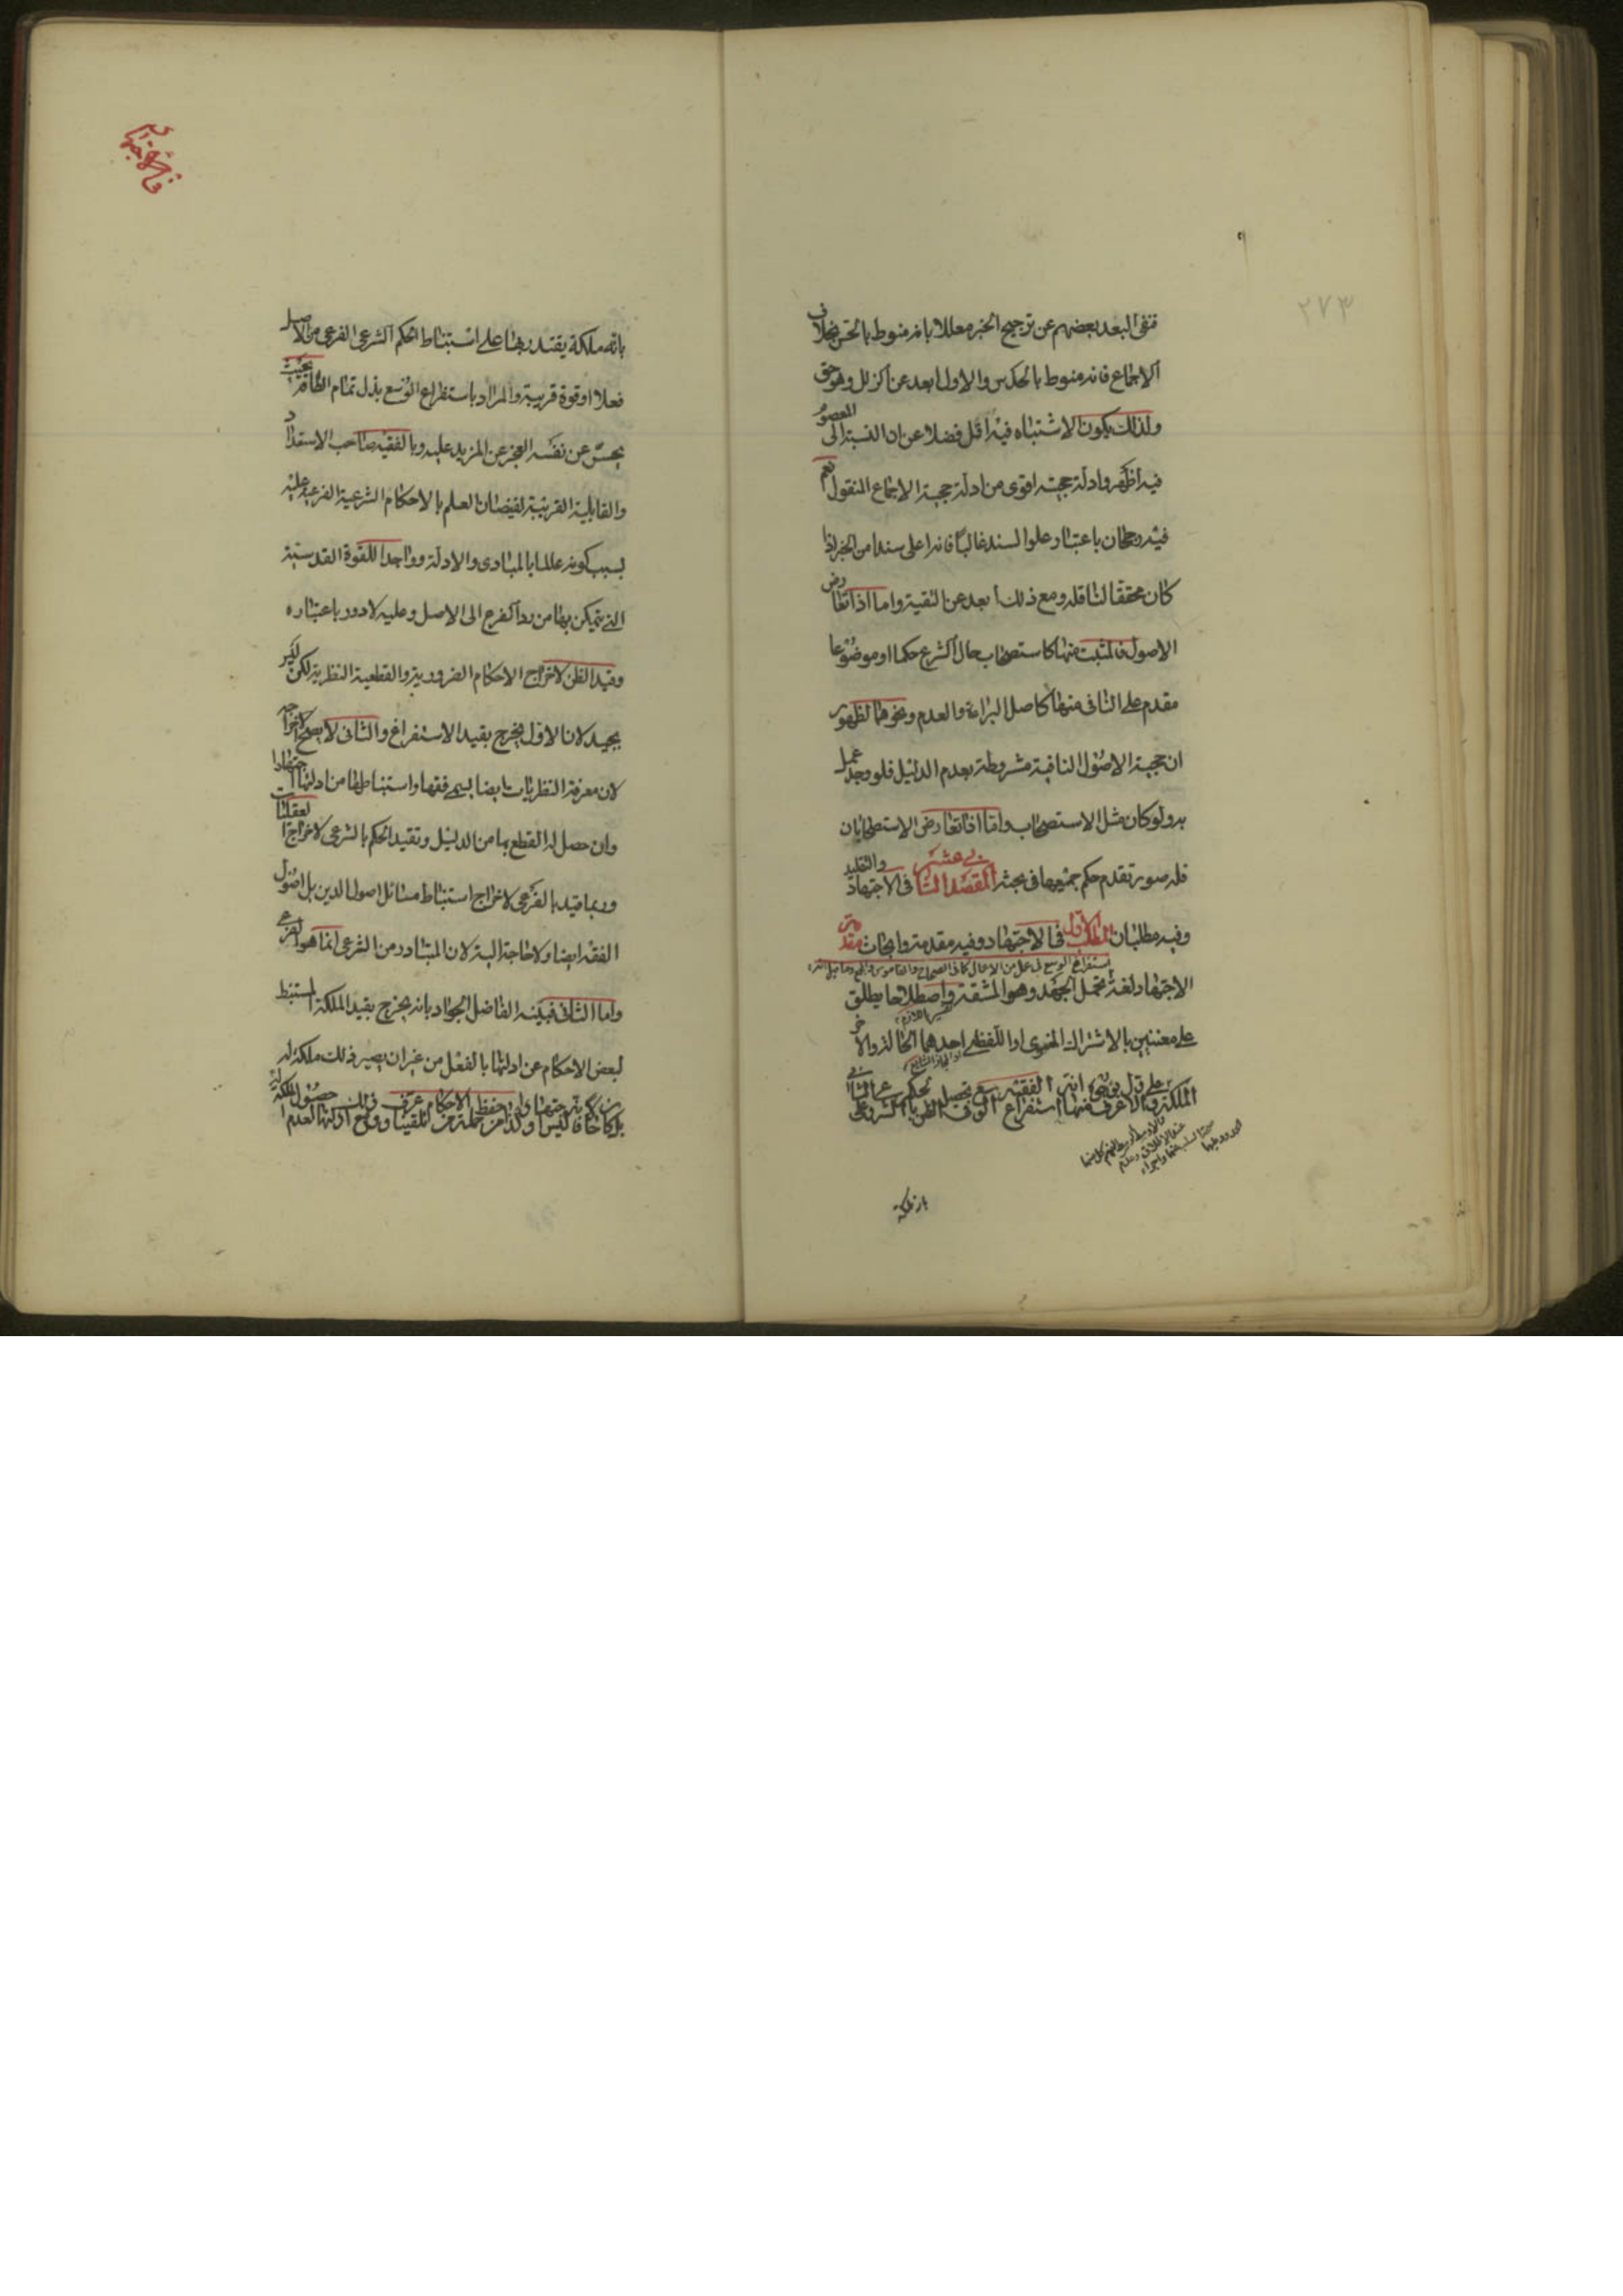 ٢٧٣
فنفى البعد بعضهم عن ترجيح الخبر معللا بانه منوط بالحس بخلاف
الاجماع فانه منوط بالحدس والاول ابعد عن الزلل وهو حق
ولذلك يكون الاشتباه فيه اقل فضلا عن ان النسبة الى المعصوم
فيه اظهر وادلة حجيته اقوى من ادلة حجية الاجماع المنقول نعم
فيه رجحان باعتبار علو السند غالبا فانه اعلى سندا من الخبر اذا
كان محققا لناقله ومع ذلك ابعد عن التقية واما اذا تعارض
الاصول فالمثبت منها كاستصحاب حال الشرع حكما او موضوعا
مقدم على النافى منها كاصل البراءة والعدم ونحوهما لظهور
ان حجية الاصول النافية مشروطة بعدم الدليل فلو وجد عمل
به ولو كان مثل الاستصحاب واما اذا تعارض الاستصحابان
فله صور تقدم حكم جميعها فى بحثه المقصد الثانى عشر فى الاجتهاد والتقليد
وفيه مطلبان المطلب الاول فى الاجتهاد وفيه مقدمة وابحاث مقدمة
الاجتهاد لغة تحمل الجهد وهو المشقة واصطلاحا يطلق
على معنيين بالاشتراك المعنوى او اللفظى احدهما الحال والاخر
الملكة والاعرف منها استفراغ الفقيه الوسع فى تحصيل الظن بالحكم الشرعى
بانه ملكة
بانه ملكة يقتدر بها على استنباط الحكم الشرعى الفرعى من الاصل
فعلا او قوة قريبة والمراد باستفراغ الوسع بذل تمام الطاقة بحيث
يحس عن نفسه العجز عن المزيد عليه وبالفقيه صاحب الاستعداد
والقابلية القريبة لفيضان العلم بالاحكام الشرعية الفرعية عليه
بسبب كونه عالما بالمبادى والادلة وواجدا للقوة القدسية
التى يتمكن بها من رد الفرع الى الاصل وعليه لا دور باعتباره
وقيد الظن لاخراج الاحكام الضرورية والقطعية النظرية لكن ليس
بجيد لان الاول يخرج بقيد الاستفراغ والثانى لا يصح اخراجه
لان معرفة النظريات ايضا يسمى فقها واستنباطها من ادلتها اجتهادا
وان حصل له القطع بها من الدليل وتقييد الحكم بالشرعى لاخراج العقليات
وربما قيد بالفرعى لاخراج استنباط مسائل اصول الدين بل اصول
الفقه ايضا ولا حاجة اليه لان المتبادر من الشرعى انما هو الفرعى
واما الثانى فبينه الفاضل الجواد بانه يخرج بقيد الملكة المستنبط
لبعض الاحكام عن ادلتها بالفعل من غير ان يصير ذلك ملكة له